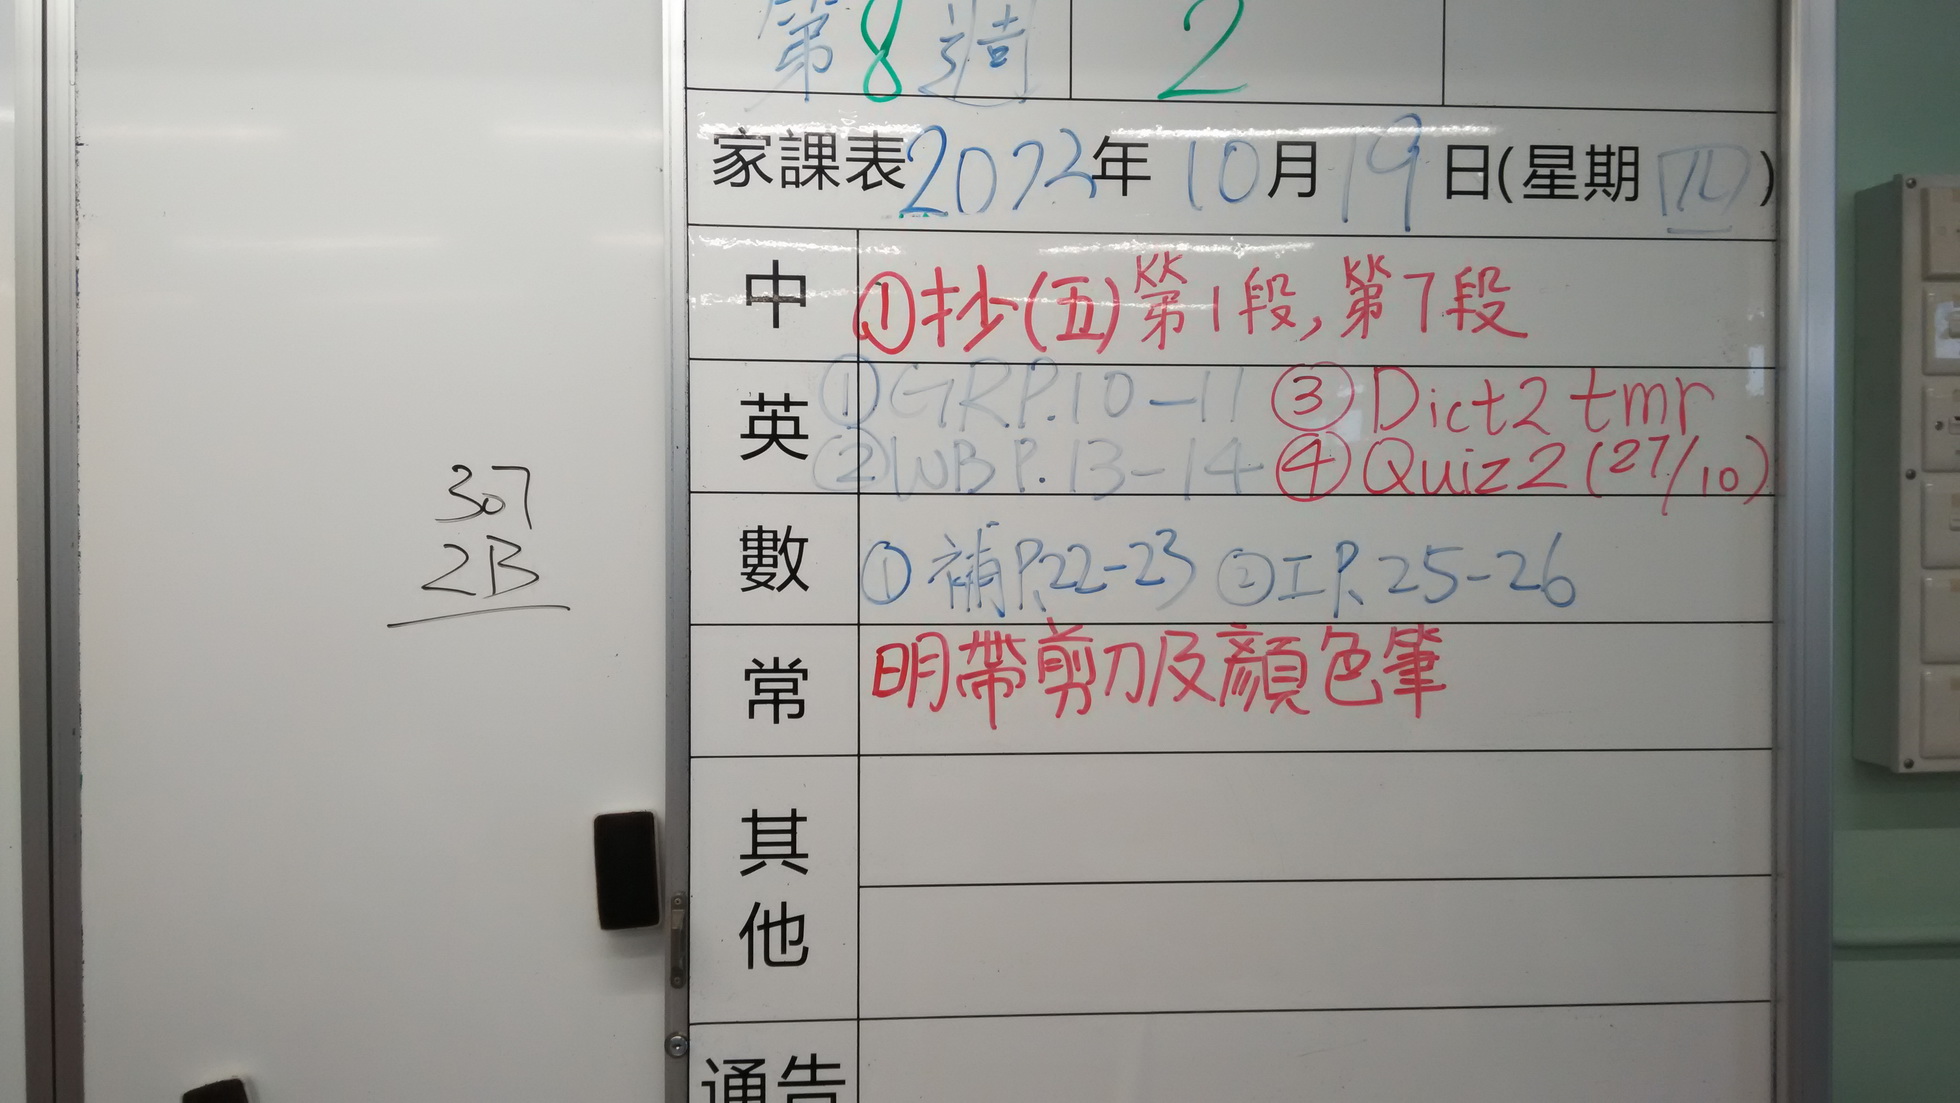 第8週 2
家課表2023年10月19日(星期四)
中 ①抄(五)第1段,第7段
英 ①GRP.10-11 ③Dict2 tmr
②WBP.13-14 ④Quiz2(27/10)
307
2B
數 ①補P.22-23 ②工P.25-26
常 明帶剪刀及顏色筆
其他
通告